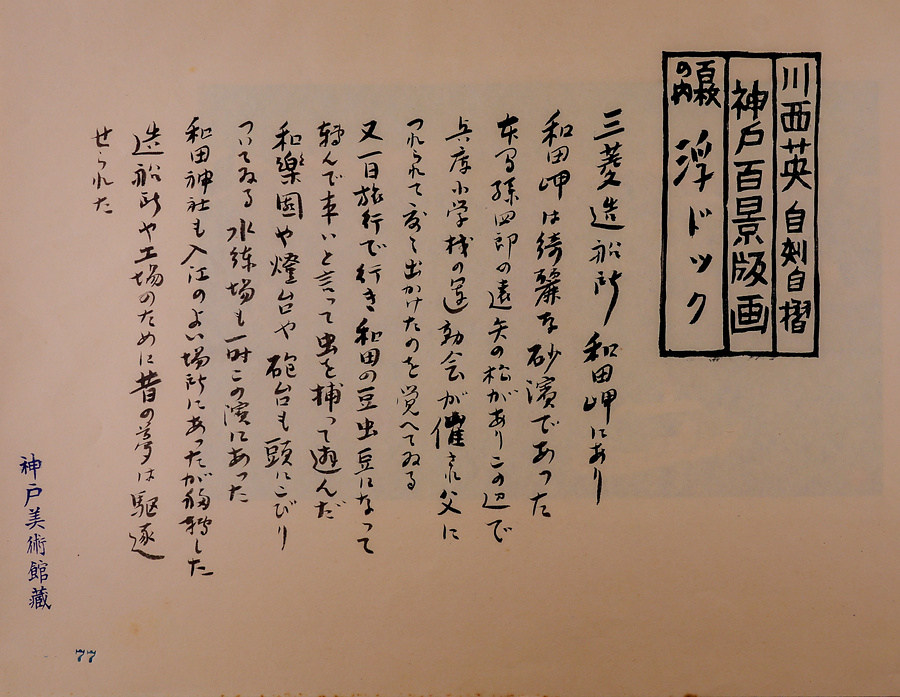 川西英 自刻自摺
神戸百景版画
百枚の内 浮ドック
三菱造船所 和田岬にあり
和田岬は綺麗な砂濱であった
本間孫四郎の遠矢の松がありこの辺で
兵庫小学校の運動会が催され父に
つれられて度々出かけたのを覚へてゐる
又一日旅行で行き和田の豆虫豆になって
轉んで来いと言って虫を捕って遊んだ
和樂園や燈台や砲台も頭にこびり
ついてゐる水練場も一時この濱にあった
和田神社も入江のよい場所にあったが移轉した
造船所や工場のために昔の夢は駆逐
せられた
神戸美術館蔵
77